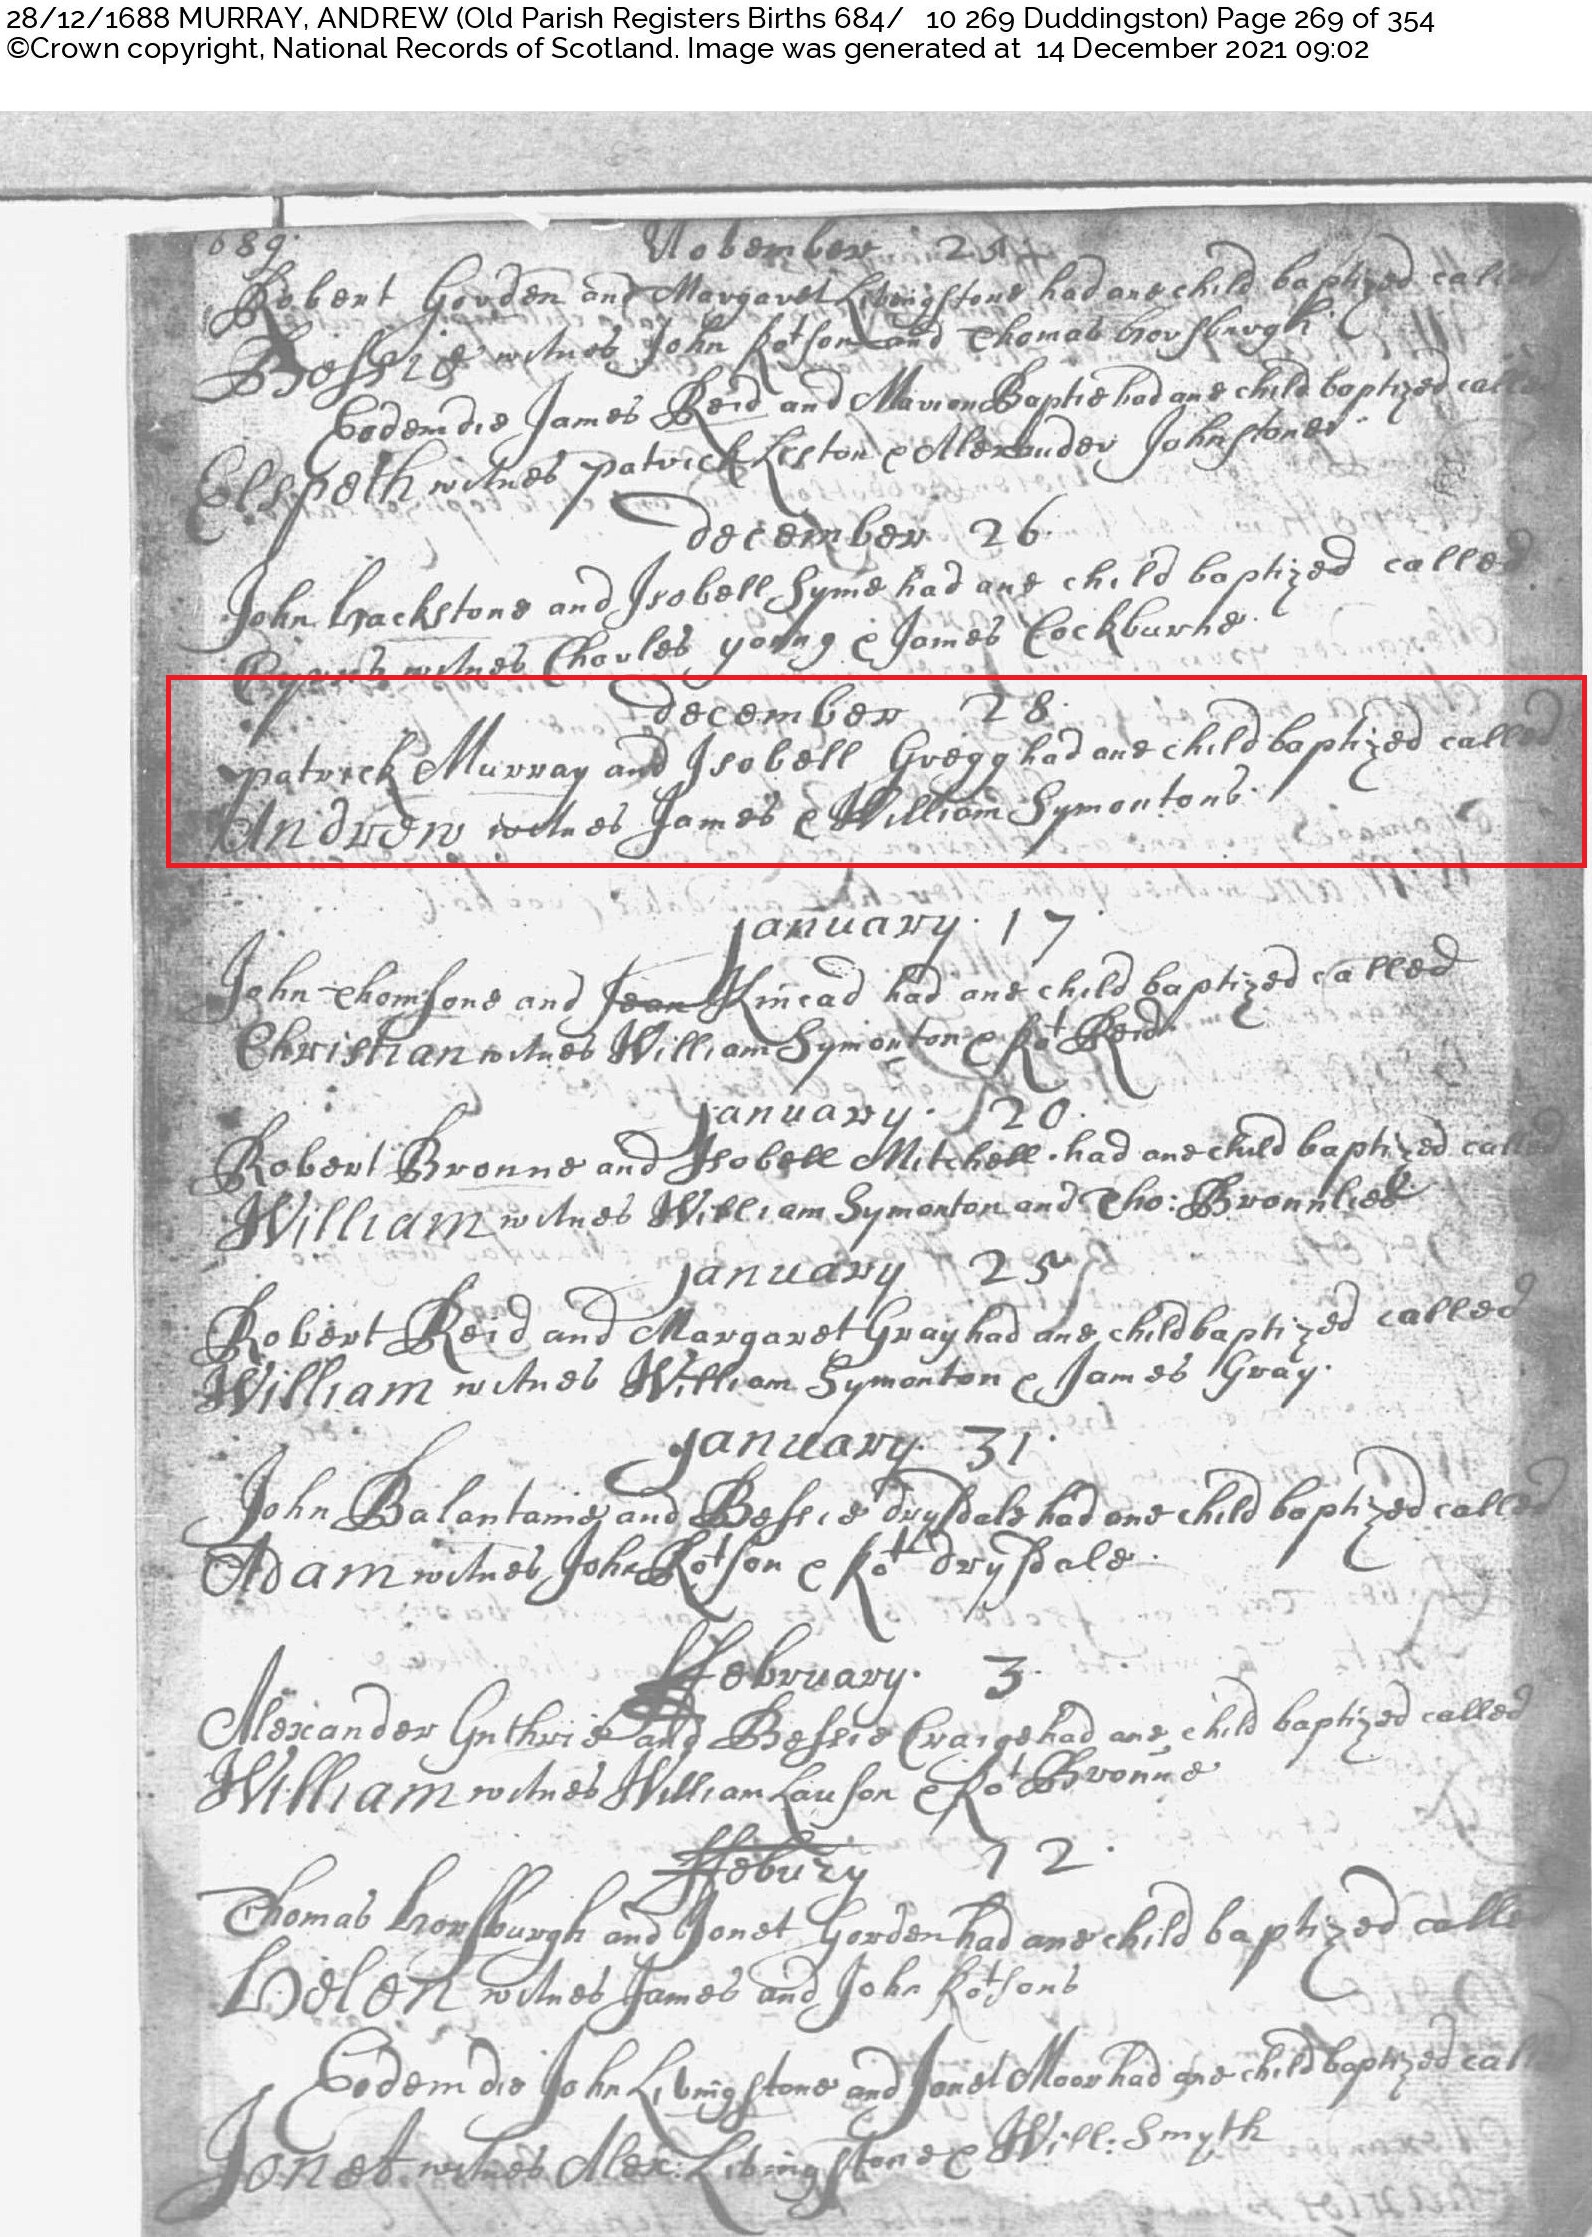 28/12/1688 MURRAY, ANDREW (Old Parish Registers Births 684/ 10 269 Duddingston) Page 269 of 354
©Crown copyright, National Records of Scotland. Image was generated at 14 December 2021 09:02
689 November 25
Robert Gorden and Margaret Livingstone had ane child baptized called
Bessie witnes John Rotson and Thomas horsburgh
Eodem die James Reid and Marion Baptie had ane child baptized called
Elspeth witnes patrick Leston & Alexander Johnstones
december 26
John hackstone and Isobell Syme had ane child baptized called
witnes Charles young & James Cockburne
december 28
patrick Murray and Isobell Gregg had ane child baptized called
Andrew witnes James & William Symontons
january 17
John Thomsone and Jean Kincad had ane child baptized called
Christian witnes William Symonton & Rot Reid
january 20
Robert Bronne and Isobell Mitchell had ane child baptized called
William witnes William Symonton and Tho: Bronnlies
january 25
Robert Reid and Margaret Gray had ane child baptized called
William witnes William Symonton & James Gray
january 31
John Balantame and Bessie drysdale had ane child baptized called
Adam witnes John Rotson & Rot drysdale
ffebruary 3
Alexander Guthrie and Bessie Craige had ane child baptized called
William witnes William Lauson & Rot Bronne
ffebury 12
Thomas horsburgh and Jonet Gorden had ane child baptized called
Helen witnes James and John Rotsons
Eodem die John Livingstone and Jonet Moor had ane child baptized called
Jonet witnes Alex: Livingstone & Will: Smyth